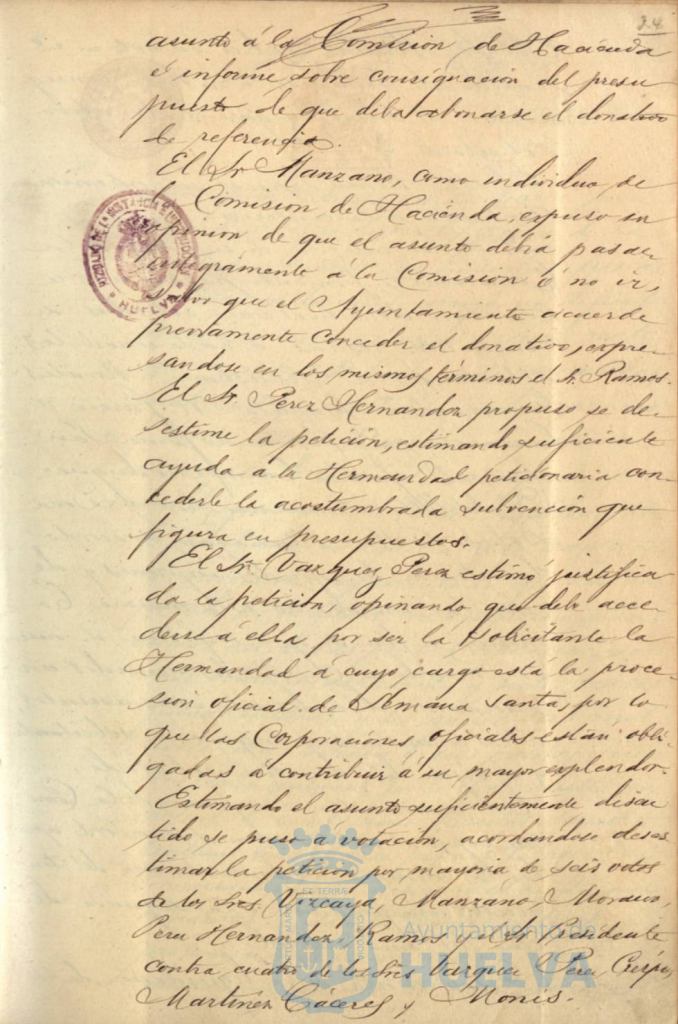 24
asunto á la Comisión de Hacienda
é informe sobre consignación del presu
puesto de que deba abonarse el donativo
de referencia.
El Sr Manzano, como individuo de
la Comisión de Hacienda, expuso su
opinion de que el asunto debía pasar
integramente á la Comisión ó no ir,
salvo que el Ayuntamiento acuerde
previamente conceder el donativo, expre-
sandose en los mismos términos el Sr. Ramos.
El Sr. Perez Hernandez propuso se de-
sestime la petición, estimando suficiente
ayuda a la Hermandad peticionaria con-
cederle la acostumbrada subvención que
figura en presupuestos.
El Sr. Vazquez Perez estimó justifica
da la petición, opinando que debe acce
derse á ella por ser la solicitante la
Hermandad á cuyo cargo está la proce-
sion oficial de Semana Santa, por lo
que las Corporaciones oficiales están obli-
gadas á contribuir á su mayor explendor.
Estimando el asunto suficientemente discu
tido se puso a votación, acordándose deses
timar la petición por mayoria de seis votos
de los Sres Vizcaya, Manzano, Moreno,
Perez Hernandez, Ramos y el Sr Presidente
contra cuatro de los Sres Vazquez Perez, Crespo,
Martinez Cáceres y Monis.
HUELVA
Ayuntamiento de
HUELVA